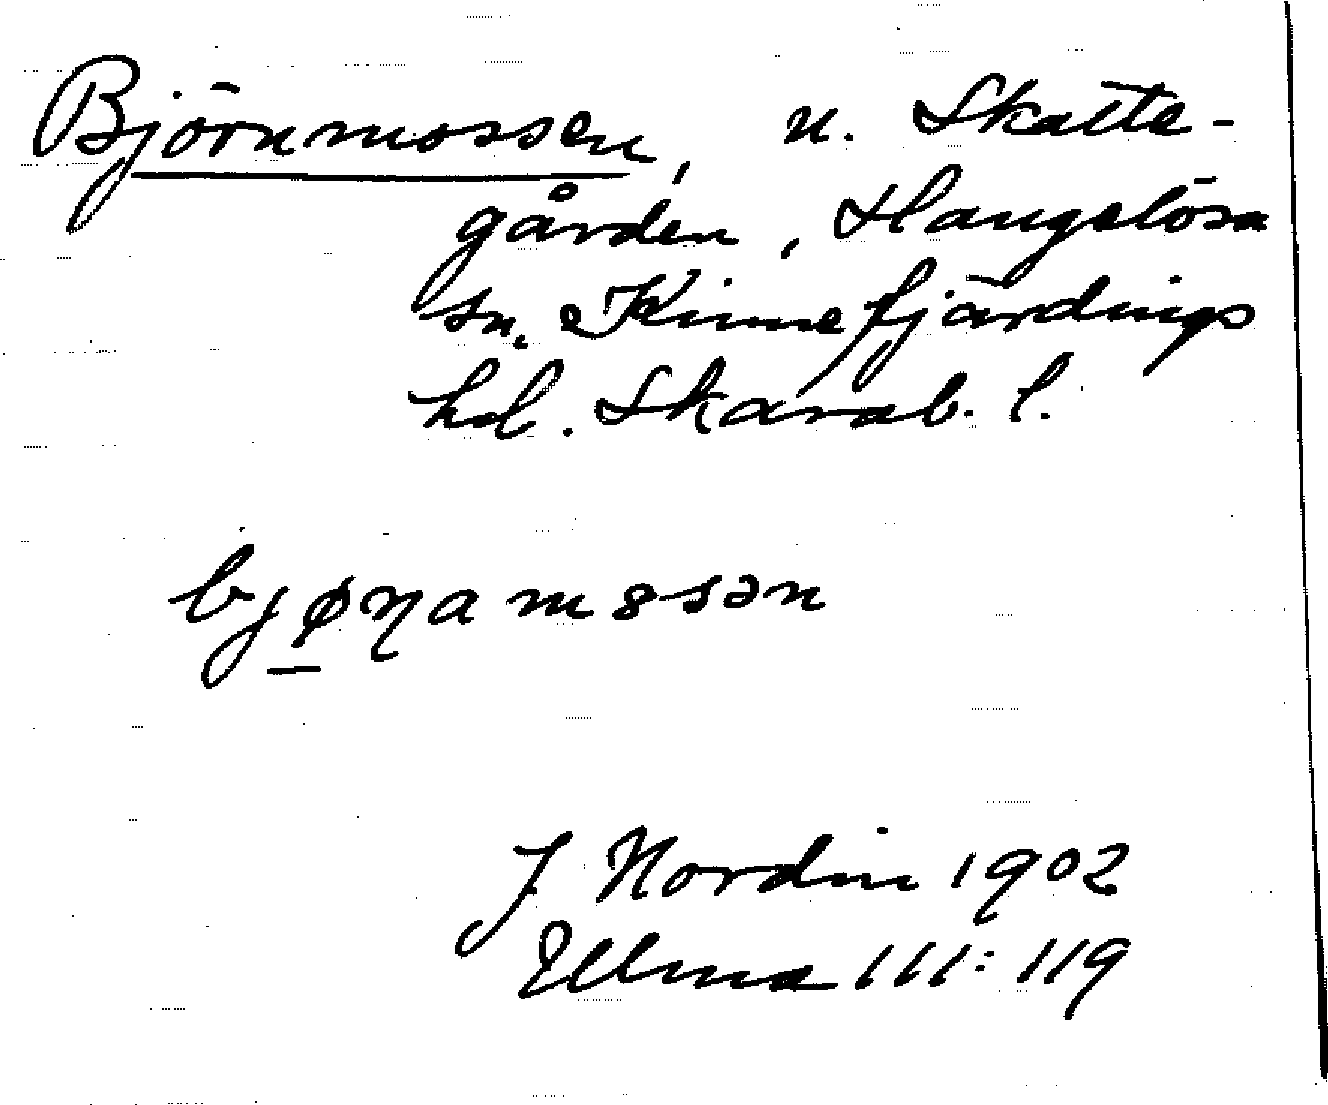 Björnmossen, n. Skatte-
gården, Haugslösa
sn. Kinnefjärdings
hd. Skarab. l.
bjøɳamossən
J Nordin 1902
Ullma 111:119